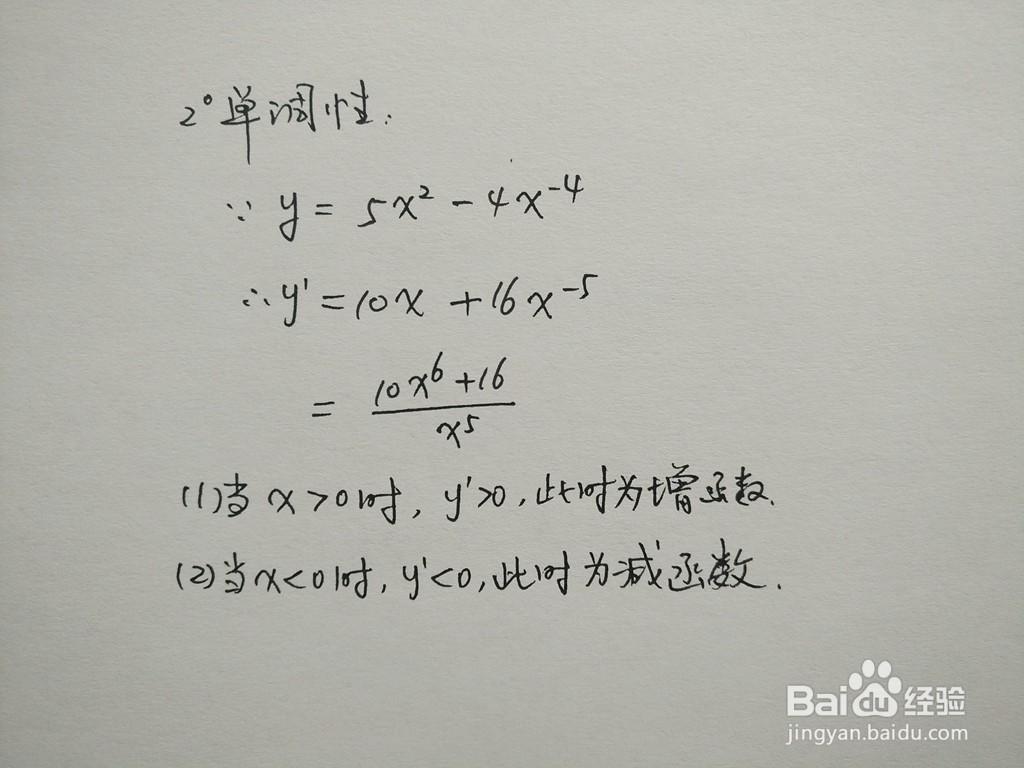 2° 单调性.
∵ y = 5x² - 4x⁻⁴
∴ y' = 10x + 16x⁻⁵
= (10x⁶ + 16)/x⁵
(1)当 x>0时, y'>0, 此时为增函数.
(2)当x<0时, y'<0, 此时为减函数.
Bai du 经验
jingyan.baidu.com